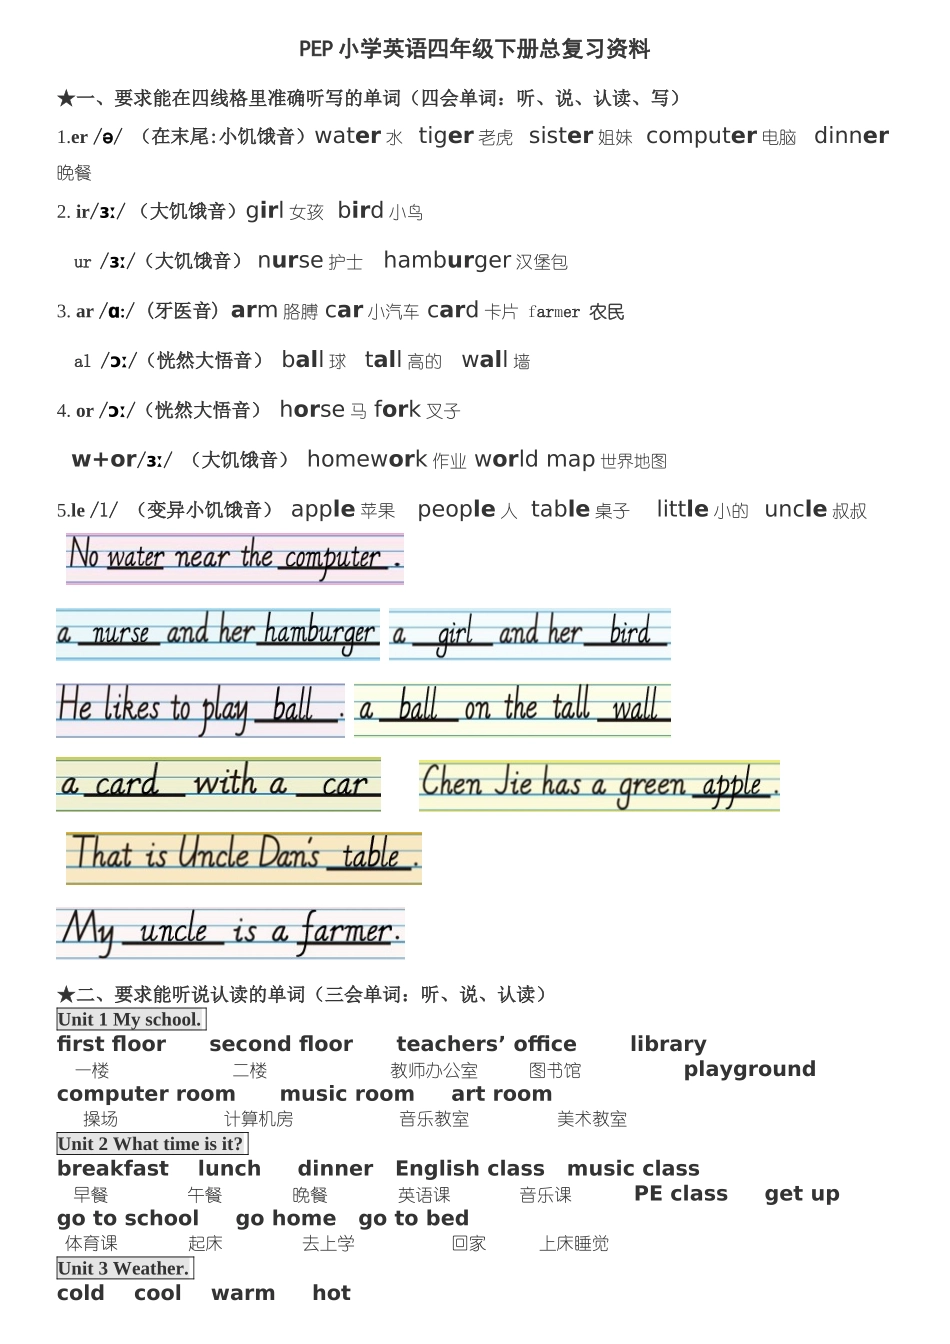 PEP 小学英语四年级下册总复习资料
★一、要求能在四线格里准确听写的单词（四会单词：听、说、认读、写）
1.er /ə/ （在末尾:小饥饿音）water 水 tiger 老虎 sister 姐妹 computer 电脑 dinner
晚餐
2. ir/ɜː/ （大饥饿音）girl 女孩 bird 小鸟
ur /ɜː/（大饥饿音） nurse 护士 hamburger 汉堡包
3. ar /ɑː/ (牙医音) arm 胳膊 car 小汽车 card 卡片 farmer 农民
al /ɔː/（恍然大悟音） ball 球 tall 高的 wall 墙
4. or /ɔː/（恍然大悟音） horse 马 fork 叉子
w+or/ɜː/ （大饥饿音） homework 作业 world map 世界地图
5.le /l/ （变异小饥饿音） apple 苹果 people 人 table 桌子 little 小的 uncle 叔叔
No water near the computer .
a nurse and her hamburger a girl and her bird
He likes to play ball . a ball on the tall wall
a card with a car Chen Jie has a green apple .
That is Uncle Dan's table .
My uncle is a farmer.
★二、要求能听说认读的单词（三会单词：听、说、认读）
Unit 1 My school.
first floor second floor teachers’ office library
一楼 二楼 教师办公室 图书馆 playground
computer room music room art room
操场 计算机房 音乐教室 美术教室
Unit 2 What time is it?
breakfast lunch dinner English class music class
早餐 午餐 晚餐 英语课 音乐课 PE class get up
go to school go home go to bed
体育课 起床 去上学 回家 上床睡觉
Unit 3 Weather.
cold cool warm hot